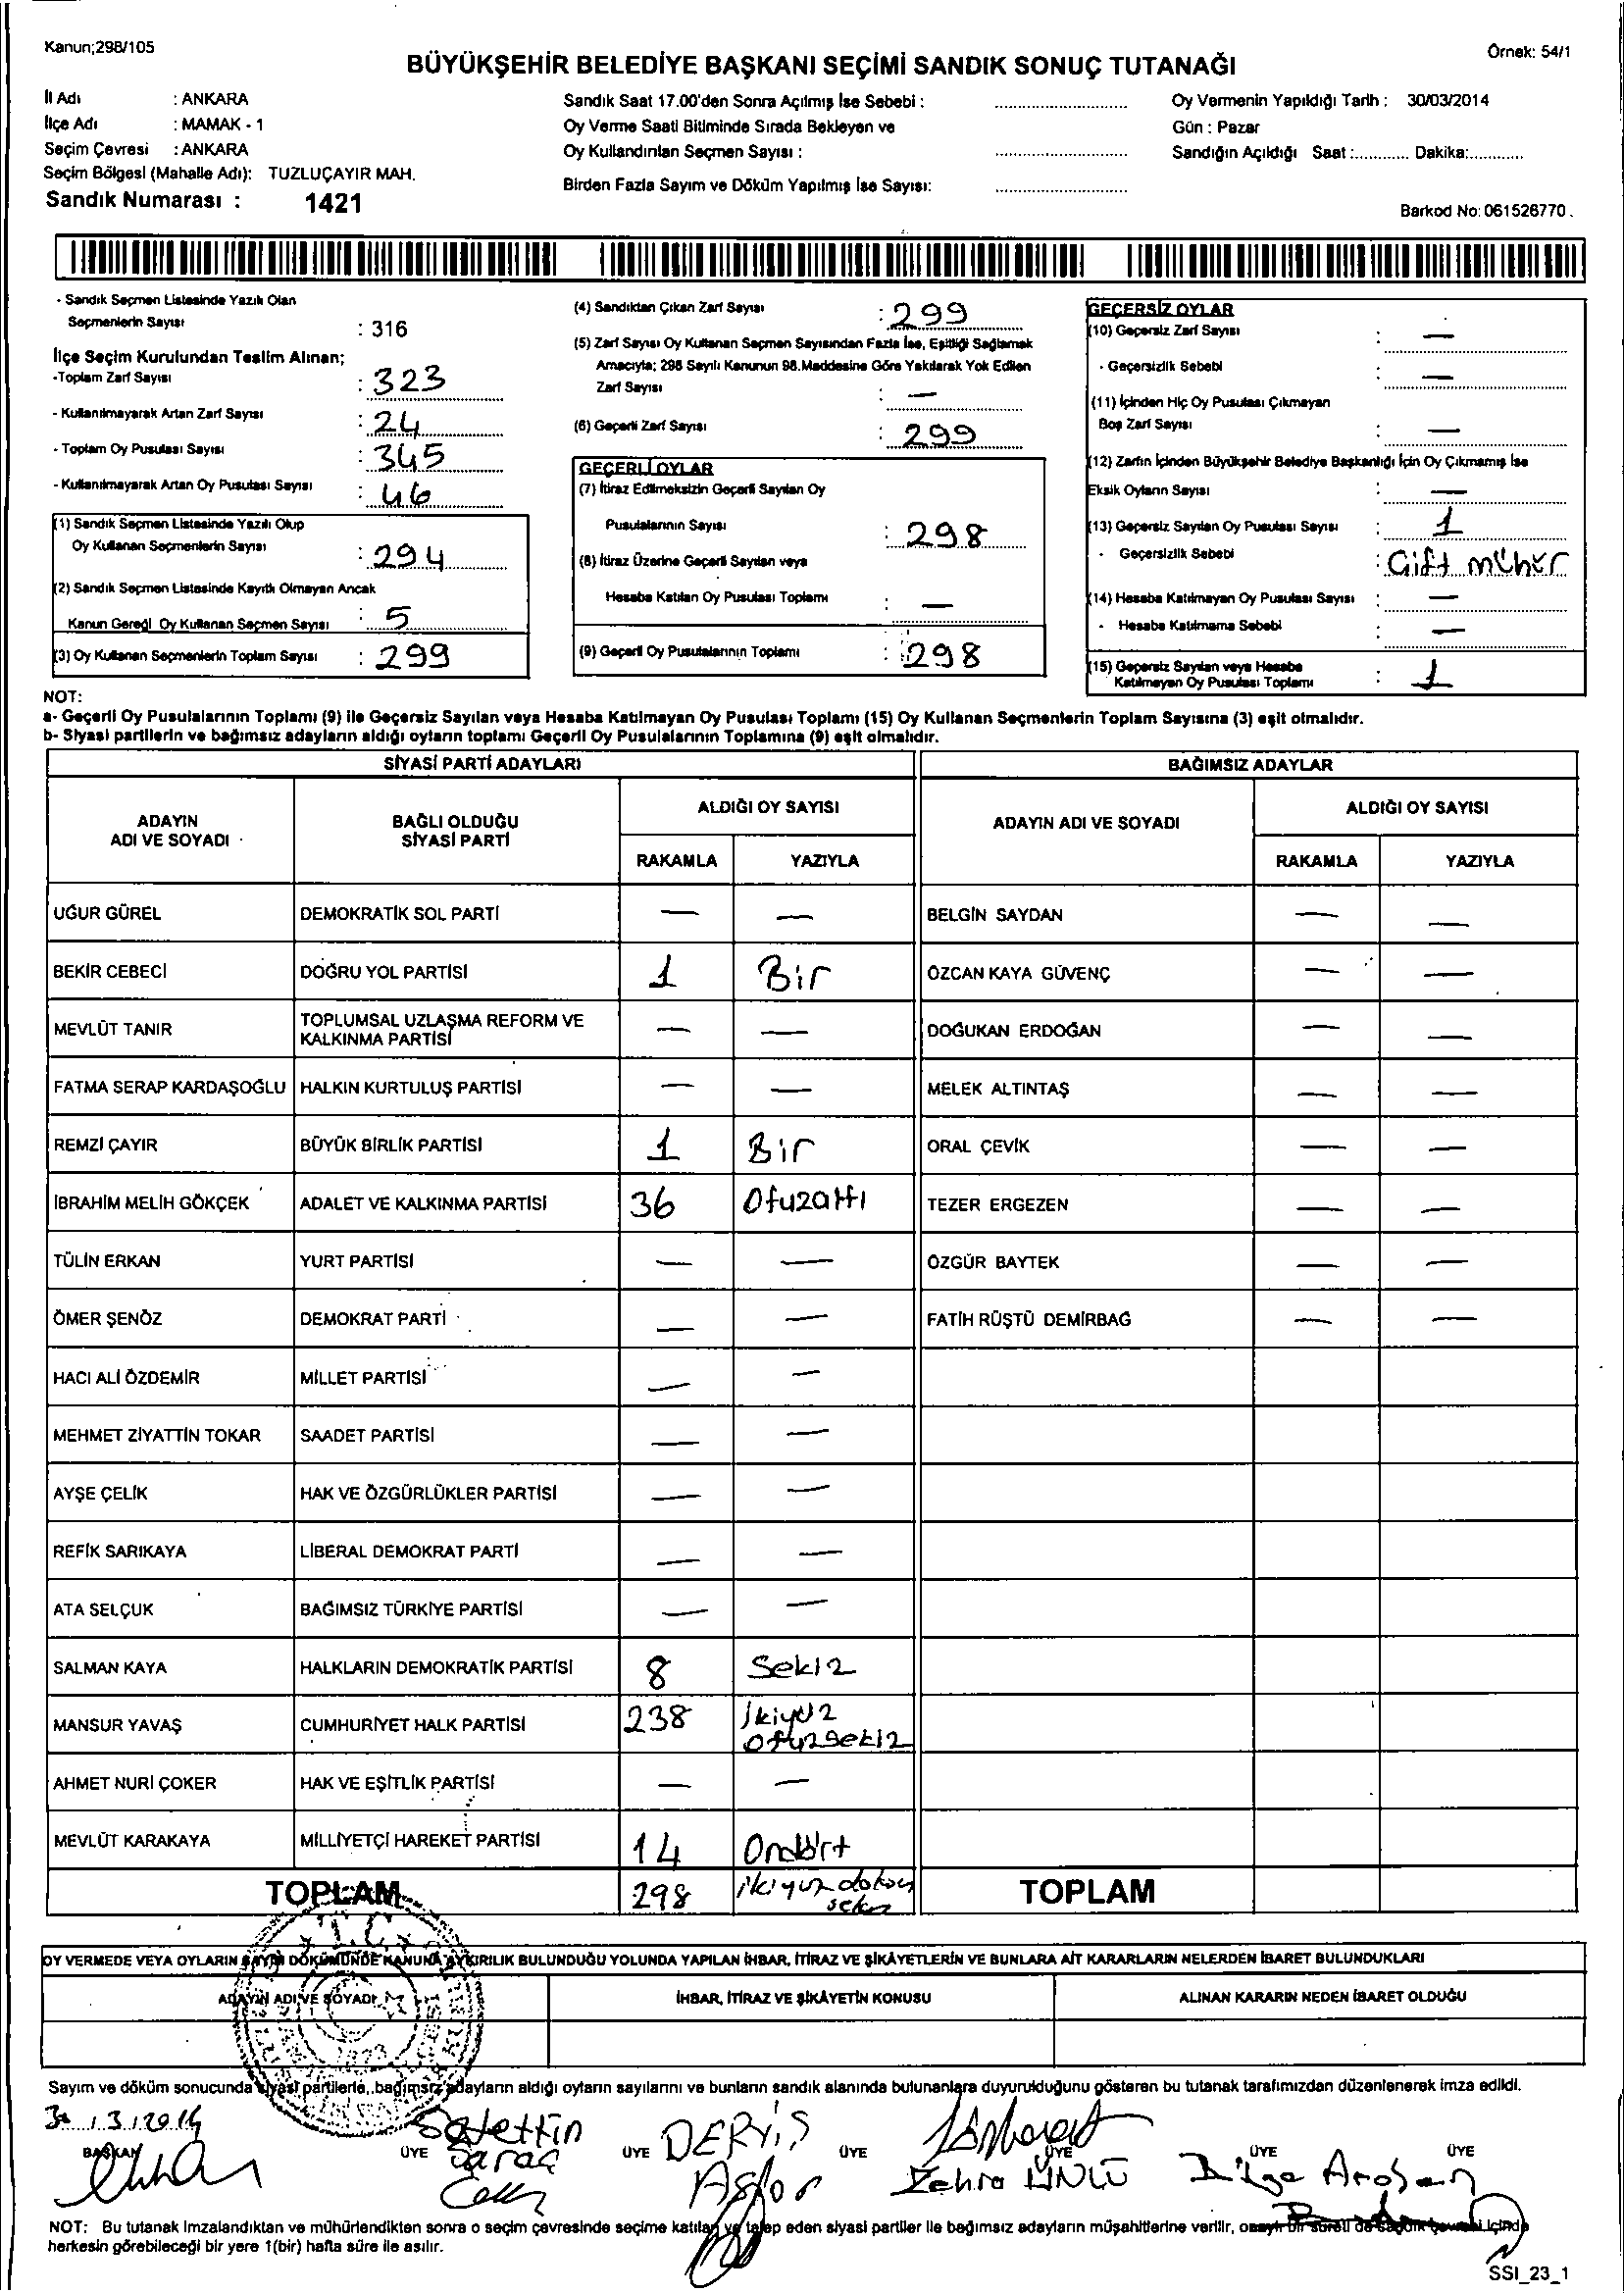 Kanun;298/105
Örnek: 54/1
BÜYÜKŞEHİR BELEDİYE BAŞKANI SEÇİMİ SANDIK SONUÇ TUTANAĞI
İl Adı : ANKARA
İlçe Adı : MAMAK - 1
Seçim Çevresi : ANKARA
Seçim Bölgesi (Mahalle Adı): TUZLUÇAYIR MAH.
Sandık Numarası : 1421
Sandık Saat 17.00'den Sonra Açılmış İse Sebebi :
Oy Verme Saati Bitiminde Sırada Bekleyen ve
Oy Kullandırılan Seçmen Sayısı :
Birden Fazla Sayım ve Döküm Yapılmış İse Sayısı:
Oy Vermenin Yapıldığı Tarih : 30/03/2014
Gün : Pazar
Sandığın Açıldığı Saat :............ Dakika:............
Barkod No: 061526770 .
- Sandık Seçmen Listesinde Yazılı Olan
Seçmenlerin Sayısı : 316
İlçe Seçim Kurulundan Teslim Alınan;
-Toplam Zarf Sayısı : 323
- Kullanılmayarak Artan Zarf Sayısı : 24
- Toplam Oy Pusulası Sayısı : 345
- Kullanılmayarak Artan Oy Pusulası Sayısı : 46
(1) Sandık Seçmen Listesinde Yazılı Olup
Oy Kullanan Seçmenlerin Sayısı : 294
(2) Sandık Seçmen Listesinde Kayıtlı Olmayan Ancak
Kanun Gereği Oy Kullanan Seçmen Sayısı : 5
(3) Oy Kullanan Seçmenlerin Toplam Sayısı : 299
(4) Sandıktan Çıkan Zarf Sayısı : 299
(5) Zarf Sayısı Oy Kullanan Seçmen Sayısından Fazla İse, Eşitliği Sağlamak
Amacıyla; 298 Sayılı Kanunun 98.Maddesine Göre Yakılarak Yok Edilen
Zarf Sayısı : —
(6) Geçerli Zarf Sayısı : 299
GEÇERLİ OYLAR
(7) İtiraz Edilmeksizin Geçerli Sayılan Oy
Pusulalarının Sayısı : 298
(8) İtiraz Üzerine Geçerli Sayılan veya
Hesaba Katılan Oy Pusulası Toplamı : —
(9) Geçerli Oy Pusulalarının Toplamı : 298
GEÇERSİZ OYLAR
(10) Geçersiz Zarf Sayısı : —
- Geçersizlik Sebebi : —
(11) İçinden Hiç Oy Pusulası Çıkmayan
Boş Zarf Sayısı : —
(12) Zarfın İçinden Büyükşehir Belediye Başkanlığı İçin Oy Çıkmamış İse
Eksik Oyların Sayısı : —
(13) Geçersiz Sayılan Oy Pusulası Sayısı : 1
- Geçersizlik Sebebi : Çift mühür
(14) Hesaba Katılmayan Oy Pusulası Sayısı : —
- Hesaba Katılmama Sebebi : —
(15) Geçersiz Sayılan veya Hesaba
Katılmayan Oy Pusulası Toplamı : 1
NOT:
a- Geçerli Oy Pusulalarının Toplamı (9) ile Geçersiz Sayılan veya Hesaba Katılmayan Oy Pusulası Toplamı (15) Oy Kullanan Seçmenlerin Toplam Sayısına (3) eşit olmalıdır.
b- Siyasi partilerin ve bağımsız adayların aldığı oyların toplamı Geçerli Oy Pusulalarının Toplamına (9) eşit olmalıdır.
SİYASİ PARTİ ADAYLARI BAĞIMSIZ ADAYLAR
ADAYIN
ADI VE SOYADI
BAĞLI OLDUĞU
SİYASİ PARTİ
ALDIĞI OY SAYISI
RAKAMLA YAZIYLA
ADAYIN ADI VE SOYADI
ALDIĞI OY SAYISI
RAKAMLA YAZIYLA
UĞUR GÜREL DEMOKRATİK SOL PARTİ — — BELGİN SAYDAN — —
BEKİR CEBECİ DOĞRU YOL PARTİSİ 1 Bir ÖZCAN KAYA GÜVENÇ — —
MEVLÜT TANIR TOPLUMSAL UZLAŞMA REFORM VE
KALKINMA PARTİSİ — — DOĞUKAN ERDOĞAN — —
FATMA SERAP KARDAŞOĞLU HALKIN KURTULUŞ PARTİSİ — — MELEK ALTINTAŞ — —
REMZİ ÇAYIR BÜYÜK BİRLİK PARTİSİ 1 Bir ORAL ÇEVİK — —
İBRAHİM MELİH GÖKÇEK ADALET VE KALKINMA PARTİSİ 36 Otuzaltı TEZER ERGEZEN — —
TÜLİN ERKAN YURT PARTİSİ — — ÖZGÜR BAYTEK — —
ÖMER ŞENÖZ DEMOKRAT PARTİ — — FATİH RÜŞTÜ DEMİRBAĞ — —
HACI ALİ ÖZDEMİR MİLLET PARTİSİ — —
MEHMET ZİYATTİN TOKAR SAADET PARTİSİ — —
AYŞE ÇELİK HAK VE ÖZGÜRLÜKLER PARTİSİ — —
REFİK SARIKAYA LİBERAL DEMOKRAT PARTİ — —
ATA SELÇUK BAĞIMSIZ TÜRKİYE PARTİSİ — —
SALMAN KAYA HALKLARIN DEMOKRATİK PARTİSİ 8 Sekiz
MANSUR YAVAŞ CUMHURİYET HALK PARTİSİ 238 İkiyüz
otuzsekiz
AHMET NURİ ÇOKER HAK VE EŞİTLİK PARTİSİ — —
MEVLÜT KARAKAYA MİLLİYETÇİ HAREKET PARTİSİ 14 Ondört
TOPLAM 298 ikiyüz TOPLAM
OY VERMEDE VEYA OYLARIN SAYIM DÖKÜMÜNDE KANUNA AYKIRILIK BULUNDUĞU YOLUNDA YAPILAN İHBAR, İTİRAZ VE ŞİKÂYETLERİN VE BUNLARA AİT KARARLARIN NELERDEN İBARET BULUNDUKLARI
ADAYIN ADI VE SOYADI İHBAR, İTİRAZ VE ŞİKÂYETİN KONUSU ALINAN KARARIN NEDEN İBARET OLDUĞU
Sayım ve döküm sonucunda siyasi partilerle, bağımsız adayların aldığı oyların sayılarını ve bunların sandık alanında bulunanlara duyurulduğunu gösteren bu tutanak tarafımızdan düzenlenerek imza edildi.
30 / 3 / 2014
BAŞKAN ÜYE ÜYE ÜYE ÜYE ÜYE ÜYE
DERVİŞ
Zehra ÜNLÜ
NOT: Bu tutanak imzalandıktan ve mühürlendikten sonra o seçim çevresinde seçime katılan ve talep eden siyasi partiler ile bağımsız adayların müşahitlerine verilir, onaylı bir sureti de sandık çevresi içinde
herkesin görebileceği bir yere 1(bir) hafta süre ile asılır.
SSI_23_1